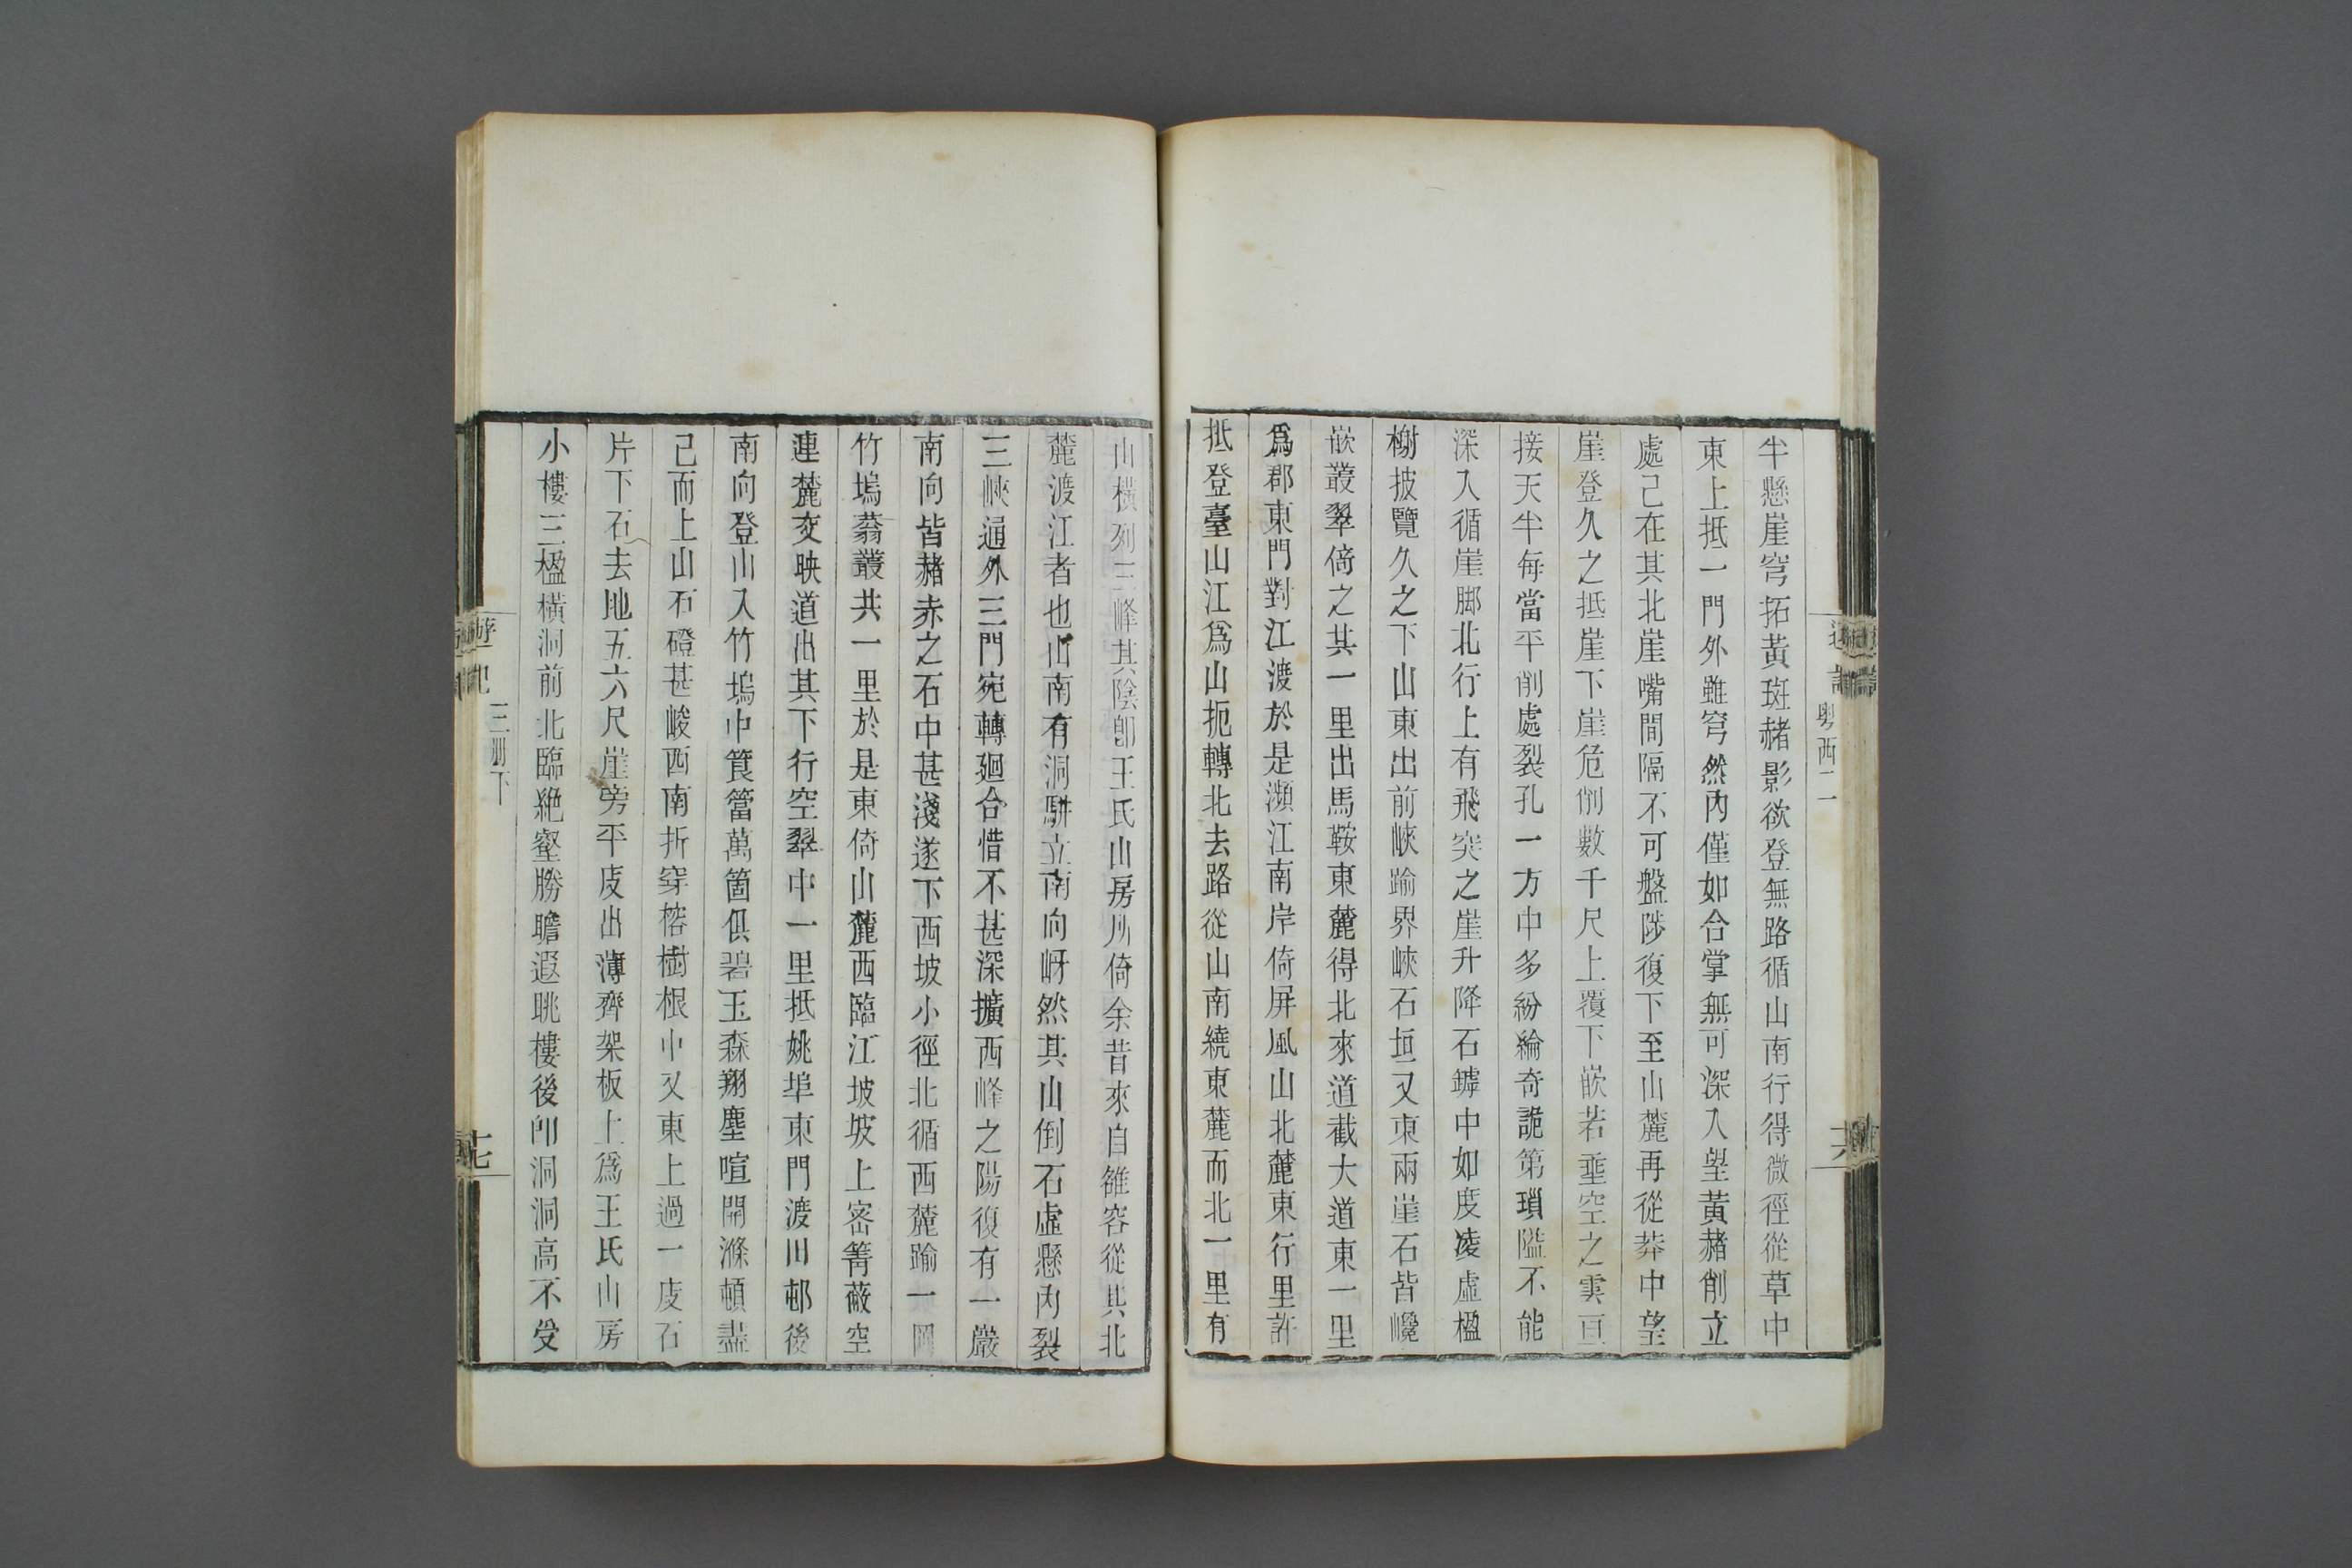 粵西二
半懸崖穹拓黃斑赭影欲登無路循山南行得微徑從草中
東上抵一門外雖穹然內僅如合掌無可深入望黃赭削立
處已在其北崖嘴間隔不可盤陟復下至山麓再從莽中望
崖登久之抵崖下崖危削數千尺上覆下嵌若垂空之雲亘
接天半每當平削處裂孔一方中多紛綸奇詭第瑣隘不能
深入循崖脚北行上有飛突之崖升降石罅中如度凌虛楹
榭披覽久之下山東出前峽踰界峽石垣又東兩崖石皆巉
嵌叢翠倚之其一里出馬鞍東麓得北來道截大道東一里
爲郡東門對江渡於是瀕江南岸倚屏風山北麓東行里許
抵登臺山江爲山扼轉北去路從山南繞東麓而北一里有
山橫列三峰其陰卽王氏山房所倚余昔來自雒容從其北
麓渡江者也山南有洞駢立南向岈然其山倒石虛懸內裂
三峽通外三門宛轉廻合惜不甚深擴西峰之陽復有一巖
南向皆赭赤之石中甚淺遂下西坡小徑北循西麓踰一岡
竹塢蓊叢共一里於是東倚山麓西臨江坡坡上密箐蔽空
連麓交映道出其下行空翠中一里抵姚埠東門渡旧邨後
南向登山入竹塢中篔簹萬箇俱碧玉森翔塵喧開滌頓盡
已而上山石磴甚峻西南折穿榕樹根中又東上過一庋石
片下石去地五六尺崖旁平庋出薄齊架板上爲王氏山房
小樓三楹橫洞前北臨絕壑勝瞻遐眺樓後卽洞洞高不受
遊記
三册下
十七